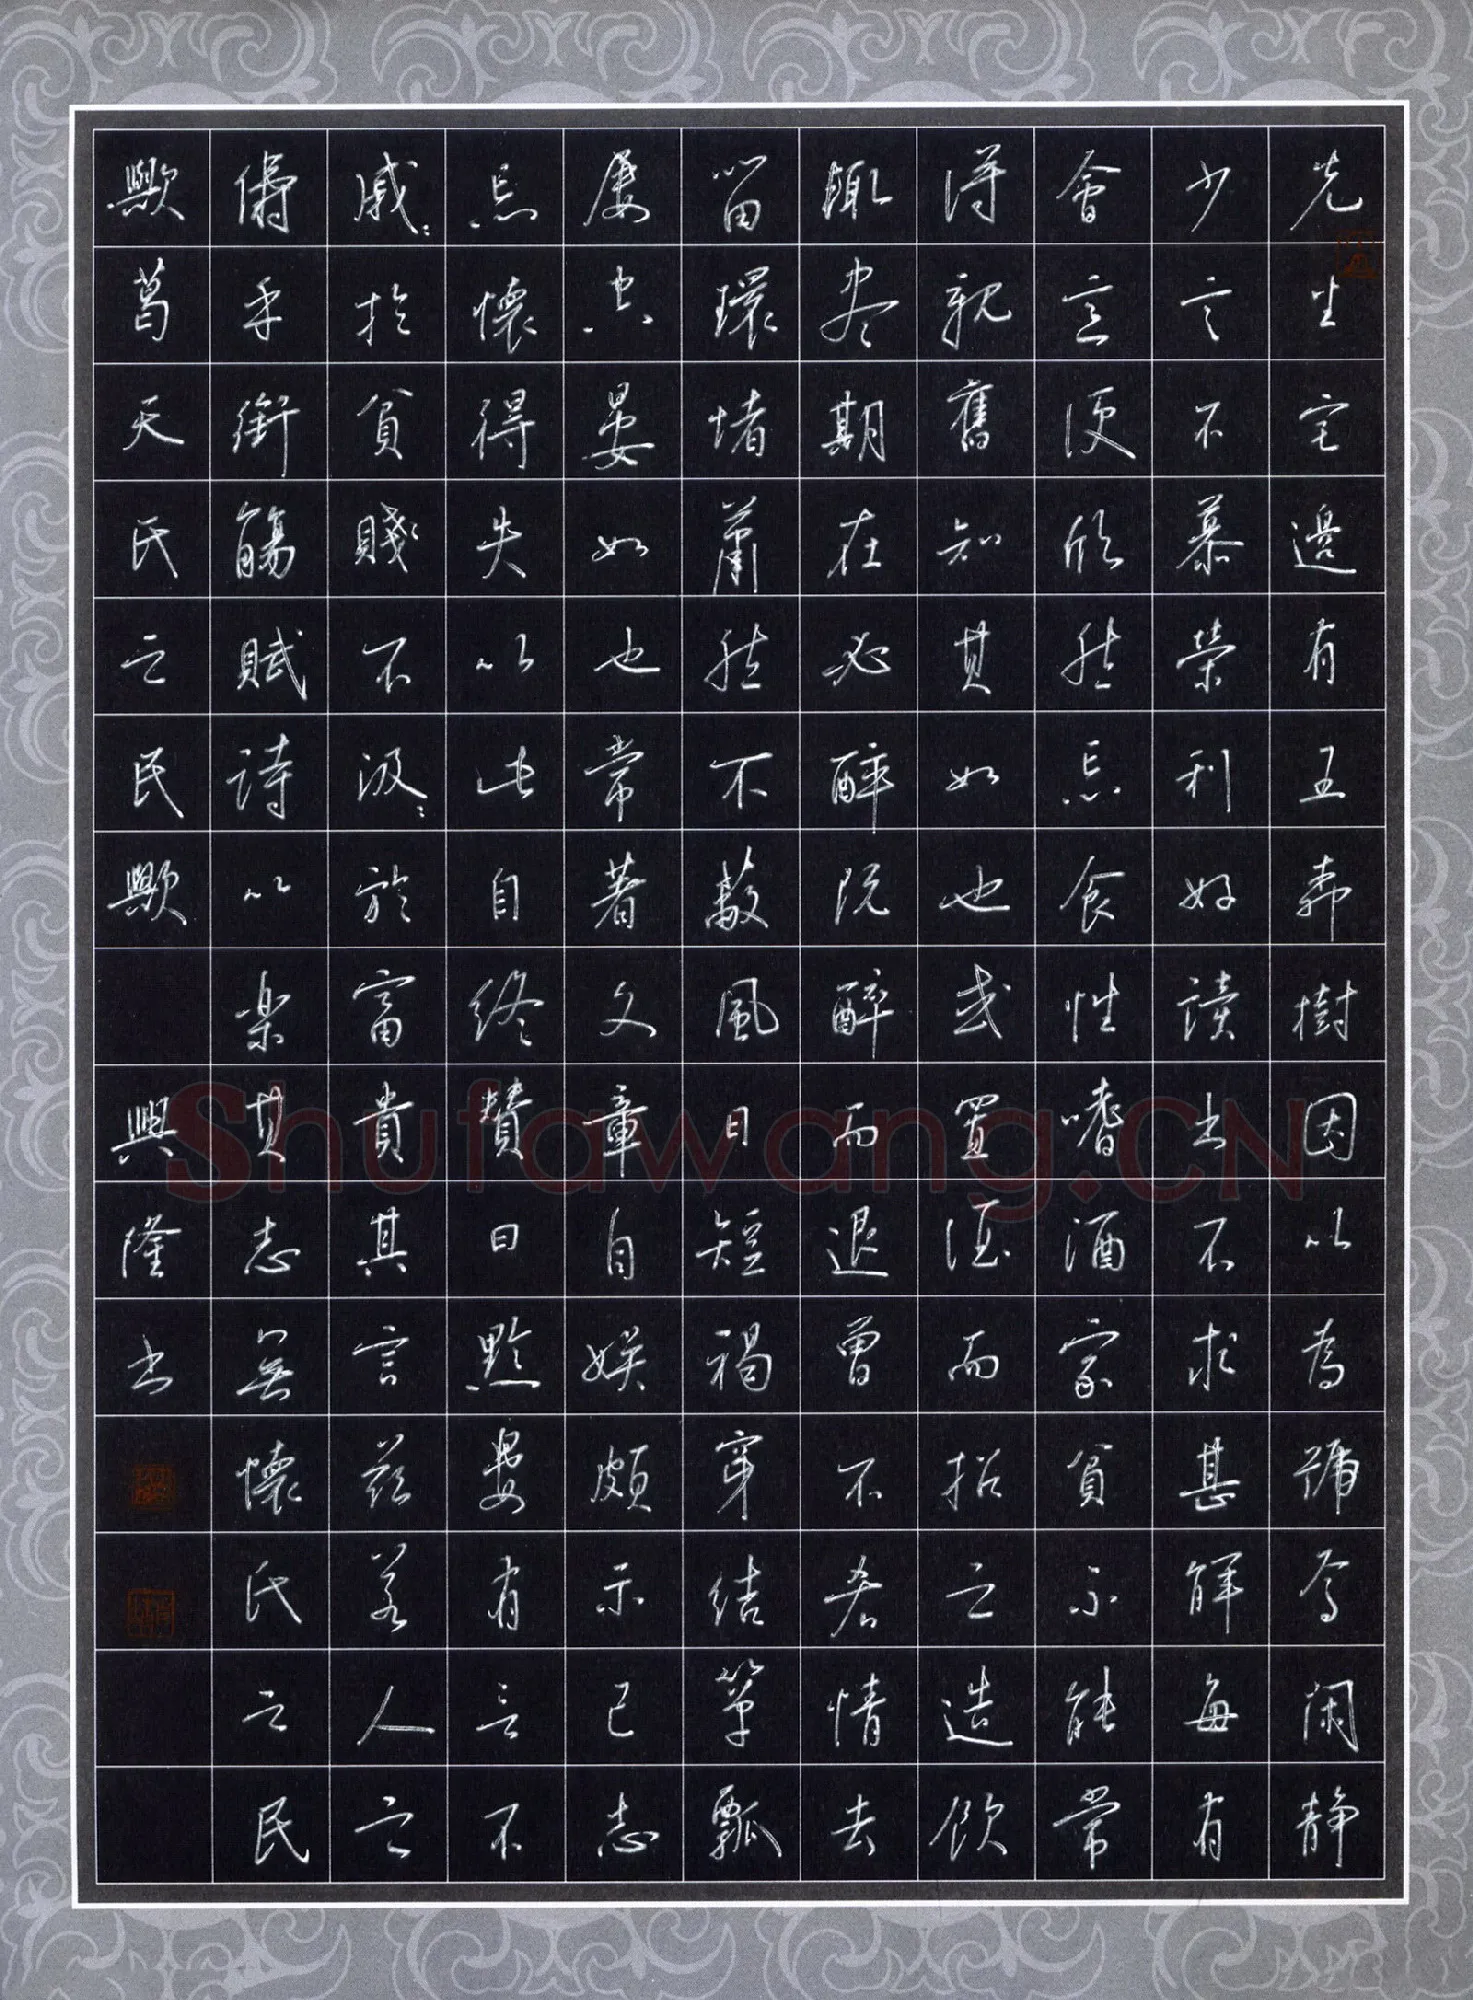 先生宅邊有五柳樹因以為號焉閑靜
少言不慕榮利好讀书不求甚解每有
會意便欣然忘食性嗜酒家貧不能常
得親舊知其如也或置酒而招之造飲
輒盡期在必醉既醉而退曾不吝情去
留環堵蕭然不蔽風日短褐穿結簞瓢
屢空晏如也常著文章自娛頗示己志
忘懷得失以此自終贊曰黔婁有言不
戚:於貧賤不汲:於富貴其言茲若人之
儔乎銜觴賦詩以楽其志無懷氏之民
歟葛天氏之民歟 興隆书
Shufawang.CN